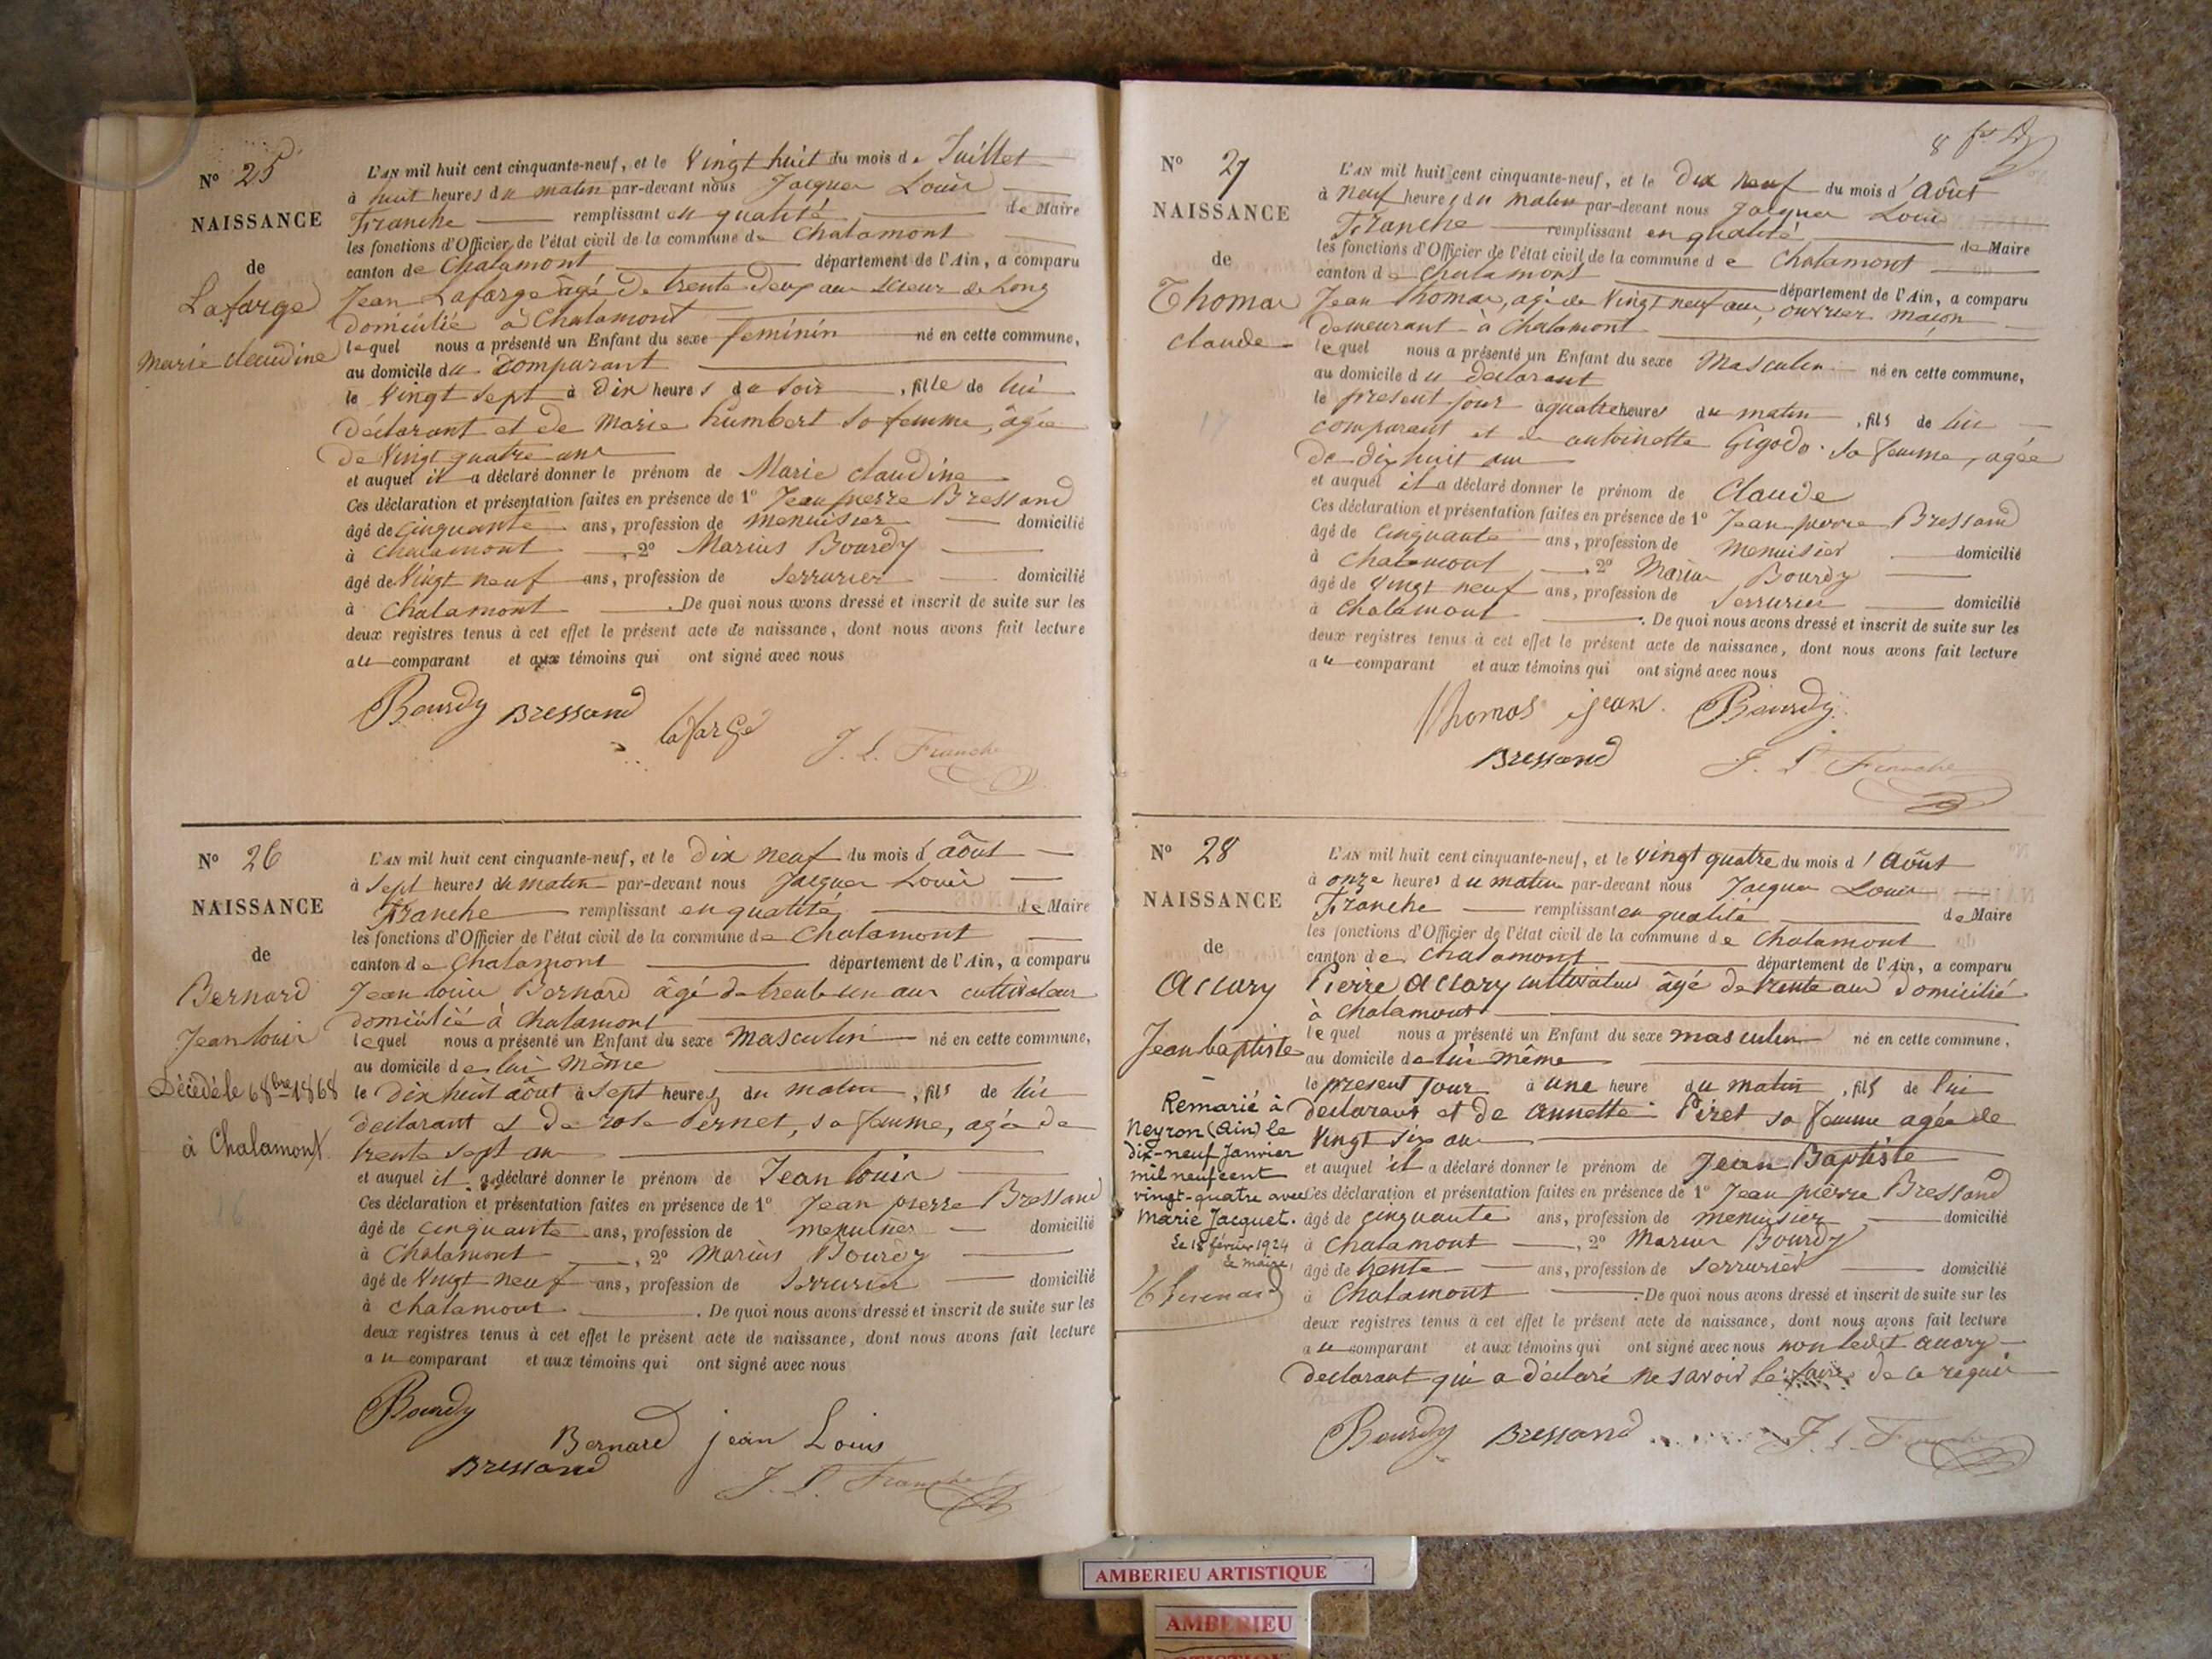 N° 25
NAISSANCE
de
Lafarge
Marie claudine
L'AN mil huit cent cinquante-neuf, et le Vingt huit du mois de Juillet
à huit heures du matin par-devant nous Jacques Louis
Franche remplissant en qualité de Maire
les fonctions d'Officier de l'état civil de la commune de Chalamont
canton de Chalamont département de l'Ain, a comparu
Jean Lafarge âgé de trente deux ans scieur de long
domicilié à Chalamont
lequel nous a présenté un Enfant du sexe feminin né en cette commune,
au domicile du Comparant
le Vingt sept à Dix heures du soir, fille de lui
déclarant et de Marie humbert sa femme, âgée
de Vingt quatre ans
et auquel il a déclaré donner le prénom de Marie claudine
Ces déclaration et présentation faites en présence de 1° Jean pierre Bressand
âgé de Cinquante ans, profession de menuisier domicilié
à Chalamont, 2° Marius Bourdy
âgé de Vingt neuf ans, profession de Serrurier domicilié
à Chalamont. De quoi nous avons dressé et inscrit de suite sur les
deux registres tenus à cet effet le présent acte de naissance, dont nous avons fait lecture
au comparant et aux témoins qui ont signé avec nous
Bourdy Bressand
lafarge J. L. Franche
N° 26
NAISSANCE
de
Bernard
Jean louis
Décédé le 6 8bre 1868
à Chalamont
L'AN mil huit cent cinquante-neuf, et le Dix neuf du mois d'Aôut
à Sept heures du matin par-devant nous Jacques Louis
Franche remplissant en qualité de Maire
les fonctions d'Officier de l'état civil de la commune de Chalamont
canton de Chalamont département de l'Ain, a comparu
Jean louis Bernard âgé de trente un ans cultivateur
domicilié à Chalamont
lequel nous a présenté un Enfant du sexe Masculin né en cette commune,
au domicile de lui même
le Dix huit aôut à Sept heures du matin, fils de lui
déclarant et de rose Pernet, sa femme, agée de
trente sept ans
et auquel il a déclaré donner le prénom de Jean louis
Ces déclaration et présentation faites en présence de 1° Jean pierre Bressand
âgé de cinquante ans, profession de menuisier domicilié
à Chalamont, 2° Marius Bourdy
âgé de Vingt neuf ans, profession de Serrurier domicilié
à Chalamont. De quoi nous avons dressé et inscrit de suite sur les
deux registres tenus à cet effet le présent acte de naissance, dont nous avons fait lecture
au comparant et aux témoins qui ont signé avec nous
Bourdy
Bernard jean Louis
Bressand J. L. Franche
8
N° 27
NAISSANCE
de
Thomas
claude
L'AN mil huit cent cinquante-neuf, et le Dix neuf du mois d'Aôut
à Neuf heures du matin par-devant nous Jacques Louis
Franche remplissant en qualité de Maire
les fonctions d'Officier de l'état civil de la commune de Chalamont
canton de Chalamont département de l'Ain, a comparu
Jean Thomas, agé de Vingt neuf ans, ouvrier maçon
demeurant à Chalamont
lequel nous a présenté un Enfant du sexe Masculin né en cette commune,
au domicile du declarant
le present jour à quatre heures du matin, fils de lui
comparant et de antoinette Gigodo sa femme, agée
de dix huit ans
et auquel il a déclaré donner le prénom de Claude
Ces déclaration et présentation faites en présence de 1° Jean pierre Bressand
âgé de cinquante ans, profession de Menuisier domicilié
à Chalamont, 2° Marius Bourdy
âgé de Vingt neuf ans, profession de Serrurier domicilié
à Chalamont. De quoi nous avons dressé et inscrit de suite sur les
deux registres tenus à cet effet le présent acte de naissance, dont nous avons fait lecture
au comparant et aux témoins qui ont signé avec nous
Thomas jean. Bourdy
Bressand J. L. Franche
N° 28
NAISSANCE
de
Accary
Jean baptiste
Remarié à
Neyron (Ain) le
dix-neuf Janvier
mil neuf cent
vingt-quatre avec
Marie Jacquet.
Le 18 février 1924
Le maire,
L'AN mil huit cent cinquante-neuf, et le vingt quatre du mois d'Aôut
à onze heures du matin par-devant nous Jacques Louis
Franche remplissant en qualité de Maire
les fonctions d'Officier de l'état civil de la commune de Chalamont
canton de Chalamont département de l'Ain, a comparu
Pierre Accary cultivateur âgé de trente ans domicilié
à Chalamont
lequel nous a présenté un Enfant du sexe masculin né en cette commune,
au domicile de lui même
le present jour à une heure du matin, fils de lui
declarant et de Annette Piret sa femme agée de
Vingt six ans
et auquel il a déclaré donner le prénom de Jean Baptiste
Ces déclaration et présentation faites en présence de 1° Jean pierre Bressand
âgé de cinquante ans, profession de menuisier domicilié
à Chalamont, 2° Marius Bourdy
âgé de trente ans, profession de Serrurier domicilié
à Chalamont. De quoi nous avons dressé et inscrit de suite sur les
deux registres tenus à cet effet le présent acte de naissance, dont nous avons fait lecture
au comparant et aux témoins qui ont signé avec nous non ledit accary
declarant qui a déclaré ne savoir le faire de ce requis
Bourdy Bressand J. L. Franche
AMBERIEU ARTISTIQUE
AMBERIEU